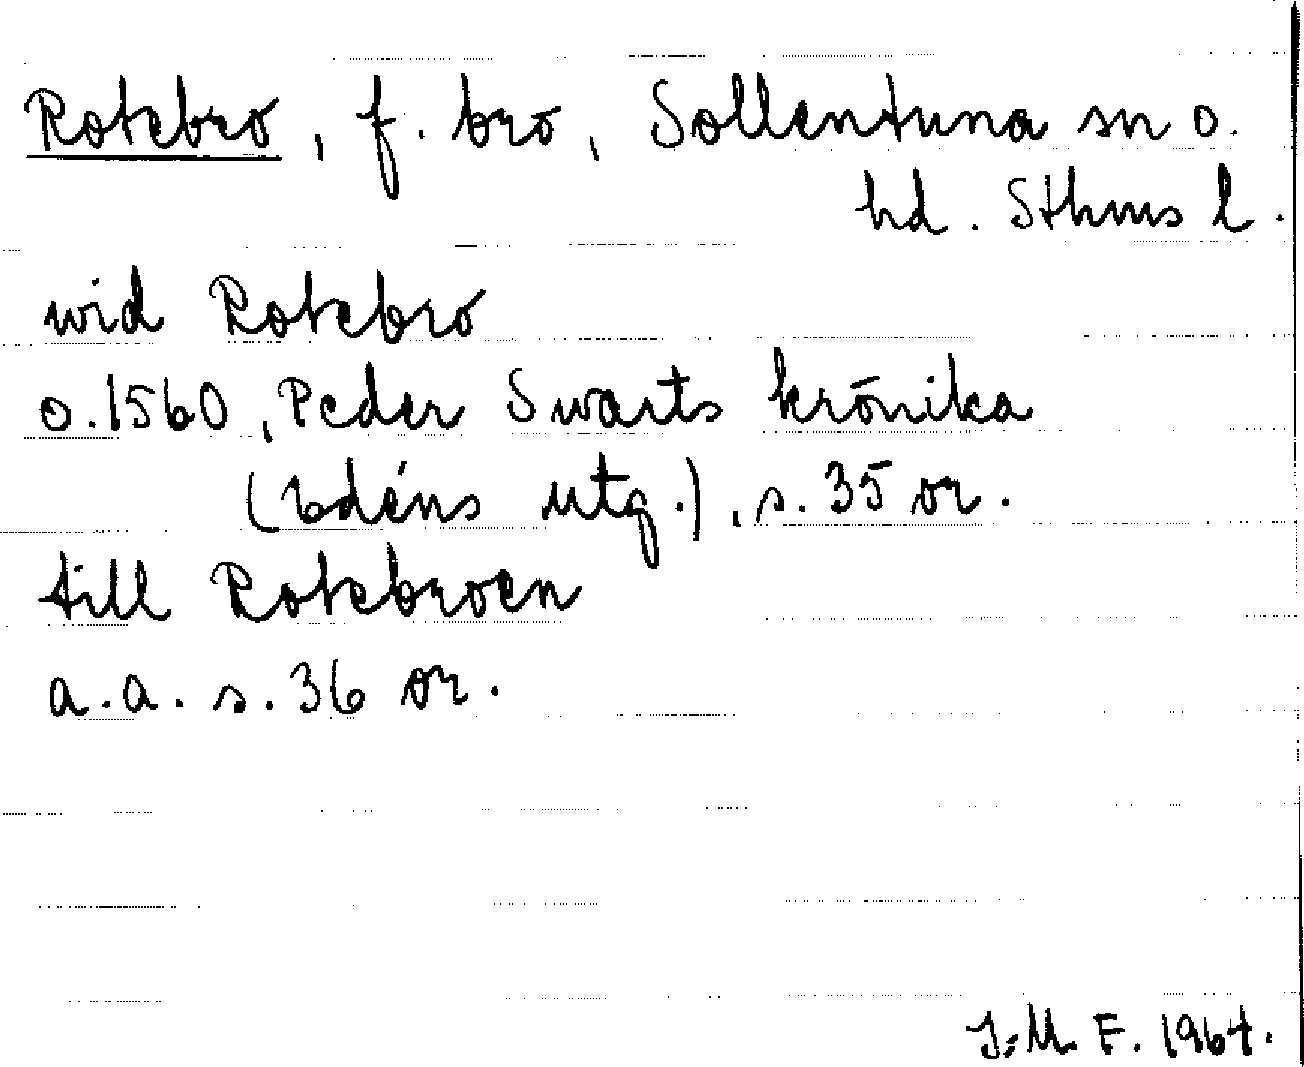 Rotebro, f. bro, Sollentuna sn o.
hd. Sthms l.
wid Rotebro
o. 1560, Peder Swarts krönika
(Edéns utg.), s. 35 or.
till Rotebroen
a.a. s. 36 or.
I.M.F. 1964.